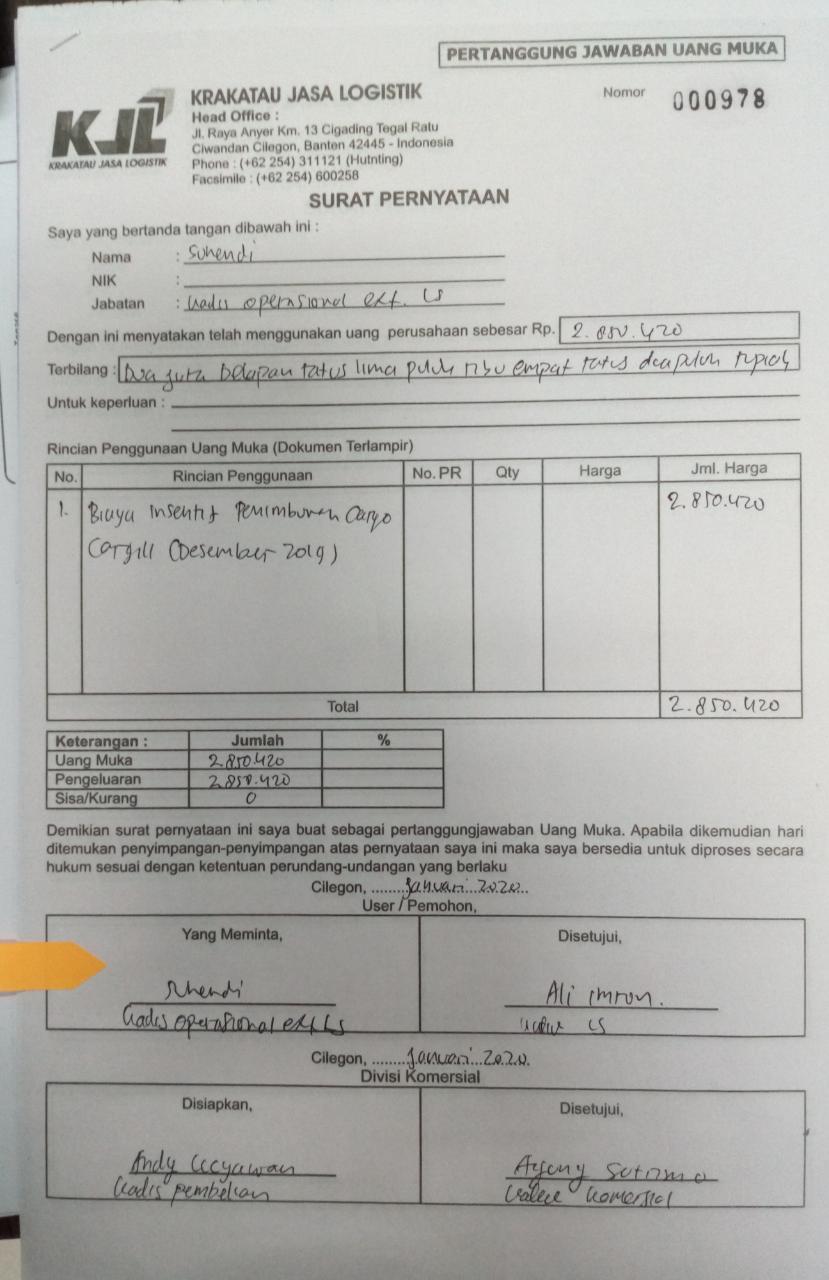 PERTANGGUNG JAWABAN UANG MUKA
KJL
KRAKATAU JASA LOGISTIK
KRAKATAU JASA LOGISTIK
Nomor 000978
Head Office :
Jl. Raya Anyer Km. 13 Cigading Tegal Ratu
Ciwandan Cilegon, Banten 42445 - Indonesia
Phone : (+62 254) 311121 (Hutnting)
Facsimile : (+62 254) 600258
SURAT PERNYATAAN
Saya yang bertanda tangan dibawah ini :
Nama : Suhendi
NIK :
Jabatan : Kadis operasional ext. LS
Dengan ini menyatakan telah menggunakan uang perusahaan sebesar Rp. 2.850.420
Terbilang : Dua juta Delapan ratus lima puluh ribu empat ratus dua puluh rupiah
Untuk keperluan :
Rincian Penggunaan Uang Muka (Dokumen Terlampir)
No. Rincian Penggunaan No. PR Qty Harga Jml. Harga
1. Biaya Insentif Penimbunan Cargo 2.850.420
Cargill (Desember 2019)
Total 2.850.420
Keterangan : Jumlah %
Uang Muka 2.850.420
Pengeluaran 2.850.420
Sisa/Kurang 0
Demikian surat pernyataan ini saya buat sebagai pertanggungjawaban Uang Muka. Apabila dikemudian hari
ditemukan penyimpangan-penyimpangan atas pernyataan saya ini maka saya bersedia untuk diproses secara
hukum sesuai dengan ketentuan perundang-undangan yang berlaku
Cilegon, ........Januari...2020..
User / Pemohon,
Yang Meminta, Disetujui,
Suhendi Ali imron.
Kadis operasional ext LS LS
Cilegon, ........Januari...2020.
Divisi Komersial
Disiapkan, Disetujui,
Andy Agung
Kadis pembelian komersial